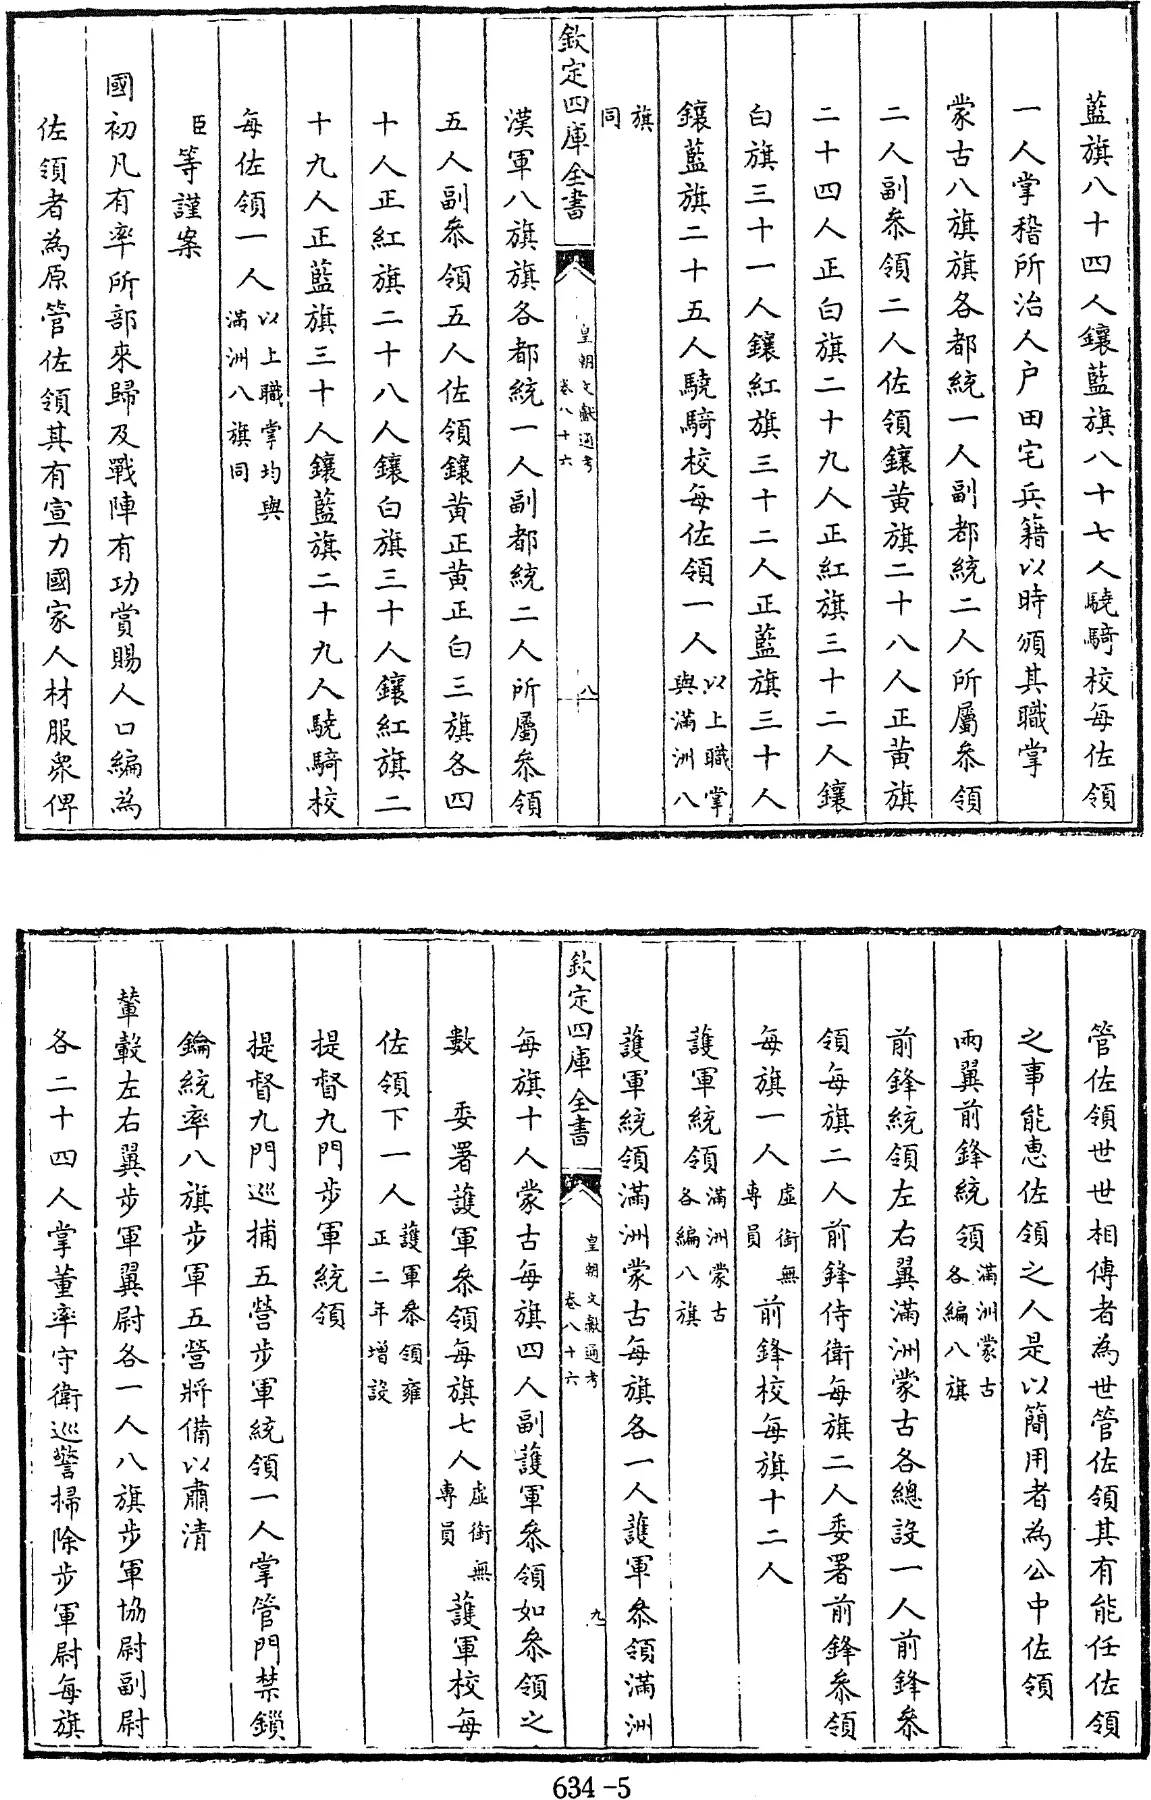 藍旗八十四人鑲藍旗八十七人驍騎校每佐領
一人掌稽所治人户田宅兵籍以時頒其職掌
蒙古八旗旗各都統一人副都統二人所屬叅領
二人副叅領二人佐領鑲黄旗二十八人正黄旗
二十四人正白旗二十九人正紅旗三十二人鑲
白旗三十一人鑲紅旗三十二人正藍旗三十人
鑲藍旗二十五人驍騎校每佐領一人以上職掌與滿洲八
旗同
欽定四庫全書
皇朝文獻通考
卷八十六
八
漢軍八旗旗各都統一人副都統二人所屬叅領
五人副叅領五人佐領鑲黄正黄正白三旗各四
十人正紅旗二十八人鑲白旗三十人鑲紅旗二
十九人正藍旗三十人鑲藍旗二十九人驍騎校
每佐領一人以上職掌均與滿洲八旗同
臣等謹案
國初凡有率所部來歸及戰陣有功賞賜人口編為
佐領者為原管佐領其有宣力國家人材服衆俾
管佐領世世相傳者為世管佐領其有能任佐領
之事能惠佐領之人是以簡用者為公中佐領
兩翼前鋒統領滿洲蒙古各編八旗
前鋒統領左右翼滿洲蒙古各總設一人前鋒叅
領每旗二人前鋒侍衛每旗二人委署前鋒叅領
每旗一人虛銜無專員前鋒校每旗十二人
護軍統領滿洲蒙古各編八旗
護軍統領滿洲蒙古每旗各一人護軍叅領滿洲
欽定四庫全書
皇朝文獻通考
卷八十六
九
每旗十人蒙古每旗四人副護軍叅領如叅領之
數 委署護軍叅領每旗七人虛銜無專員護軍校每
佐領下一人護軍叅領雍正二年增設
提督九門步軍統領
提督九門巡捕五營步軍統領一人掌管門禁鎖
鑰統率八旗步軍五營將備以肅清
輦轂左右翼步軍翼尉各一人八旗步軍協尉副尉
各二十四人掌董率守衛巡警掃除步軍尉每旗
634-5